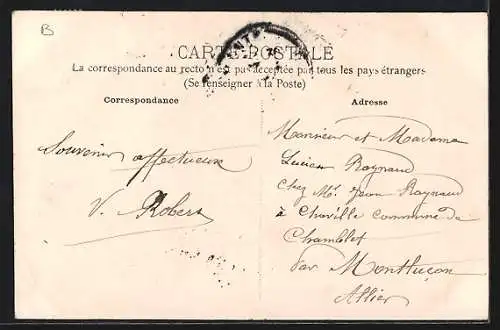 B
CARTE POSTALE
La correspondance au recto n'est pas acceptée par tous les pays étrangers
(Se renseigner à la Poste)
Correspondance
Adresse
Souvenir affectueux
V. Robert
Monsieur et Madame
Lucien Raynaud
chez Mr. Jean Raynaud
à Chaville commune de
Chamblet
par Montluçon
Allier